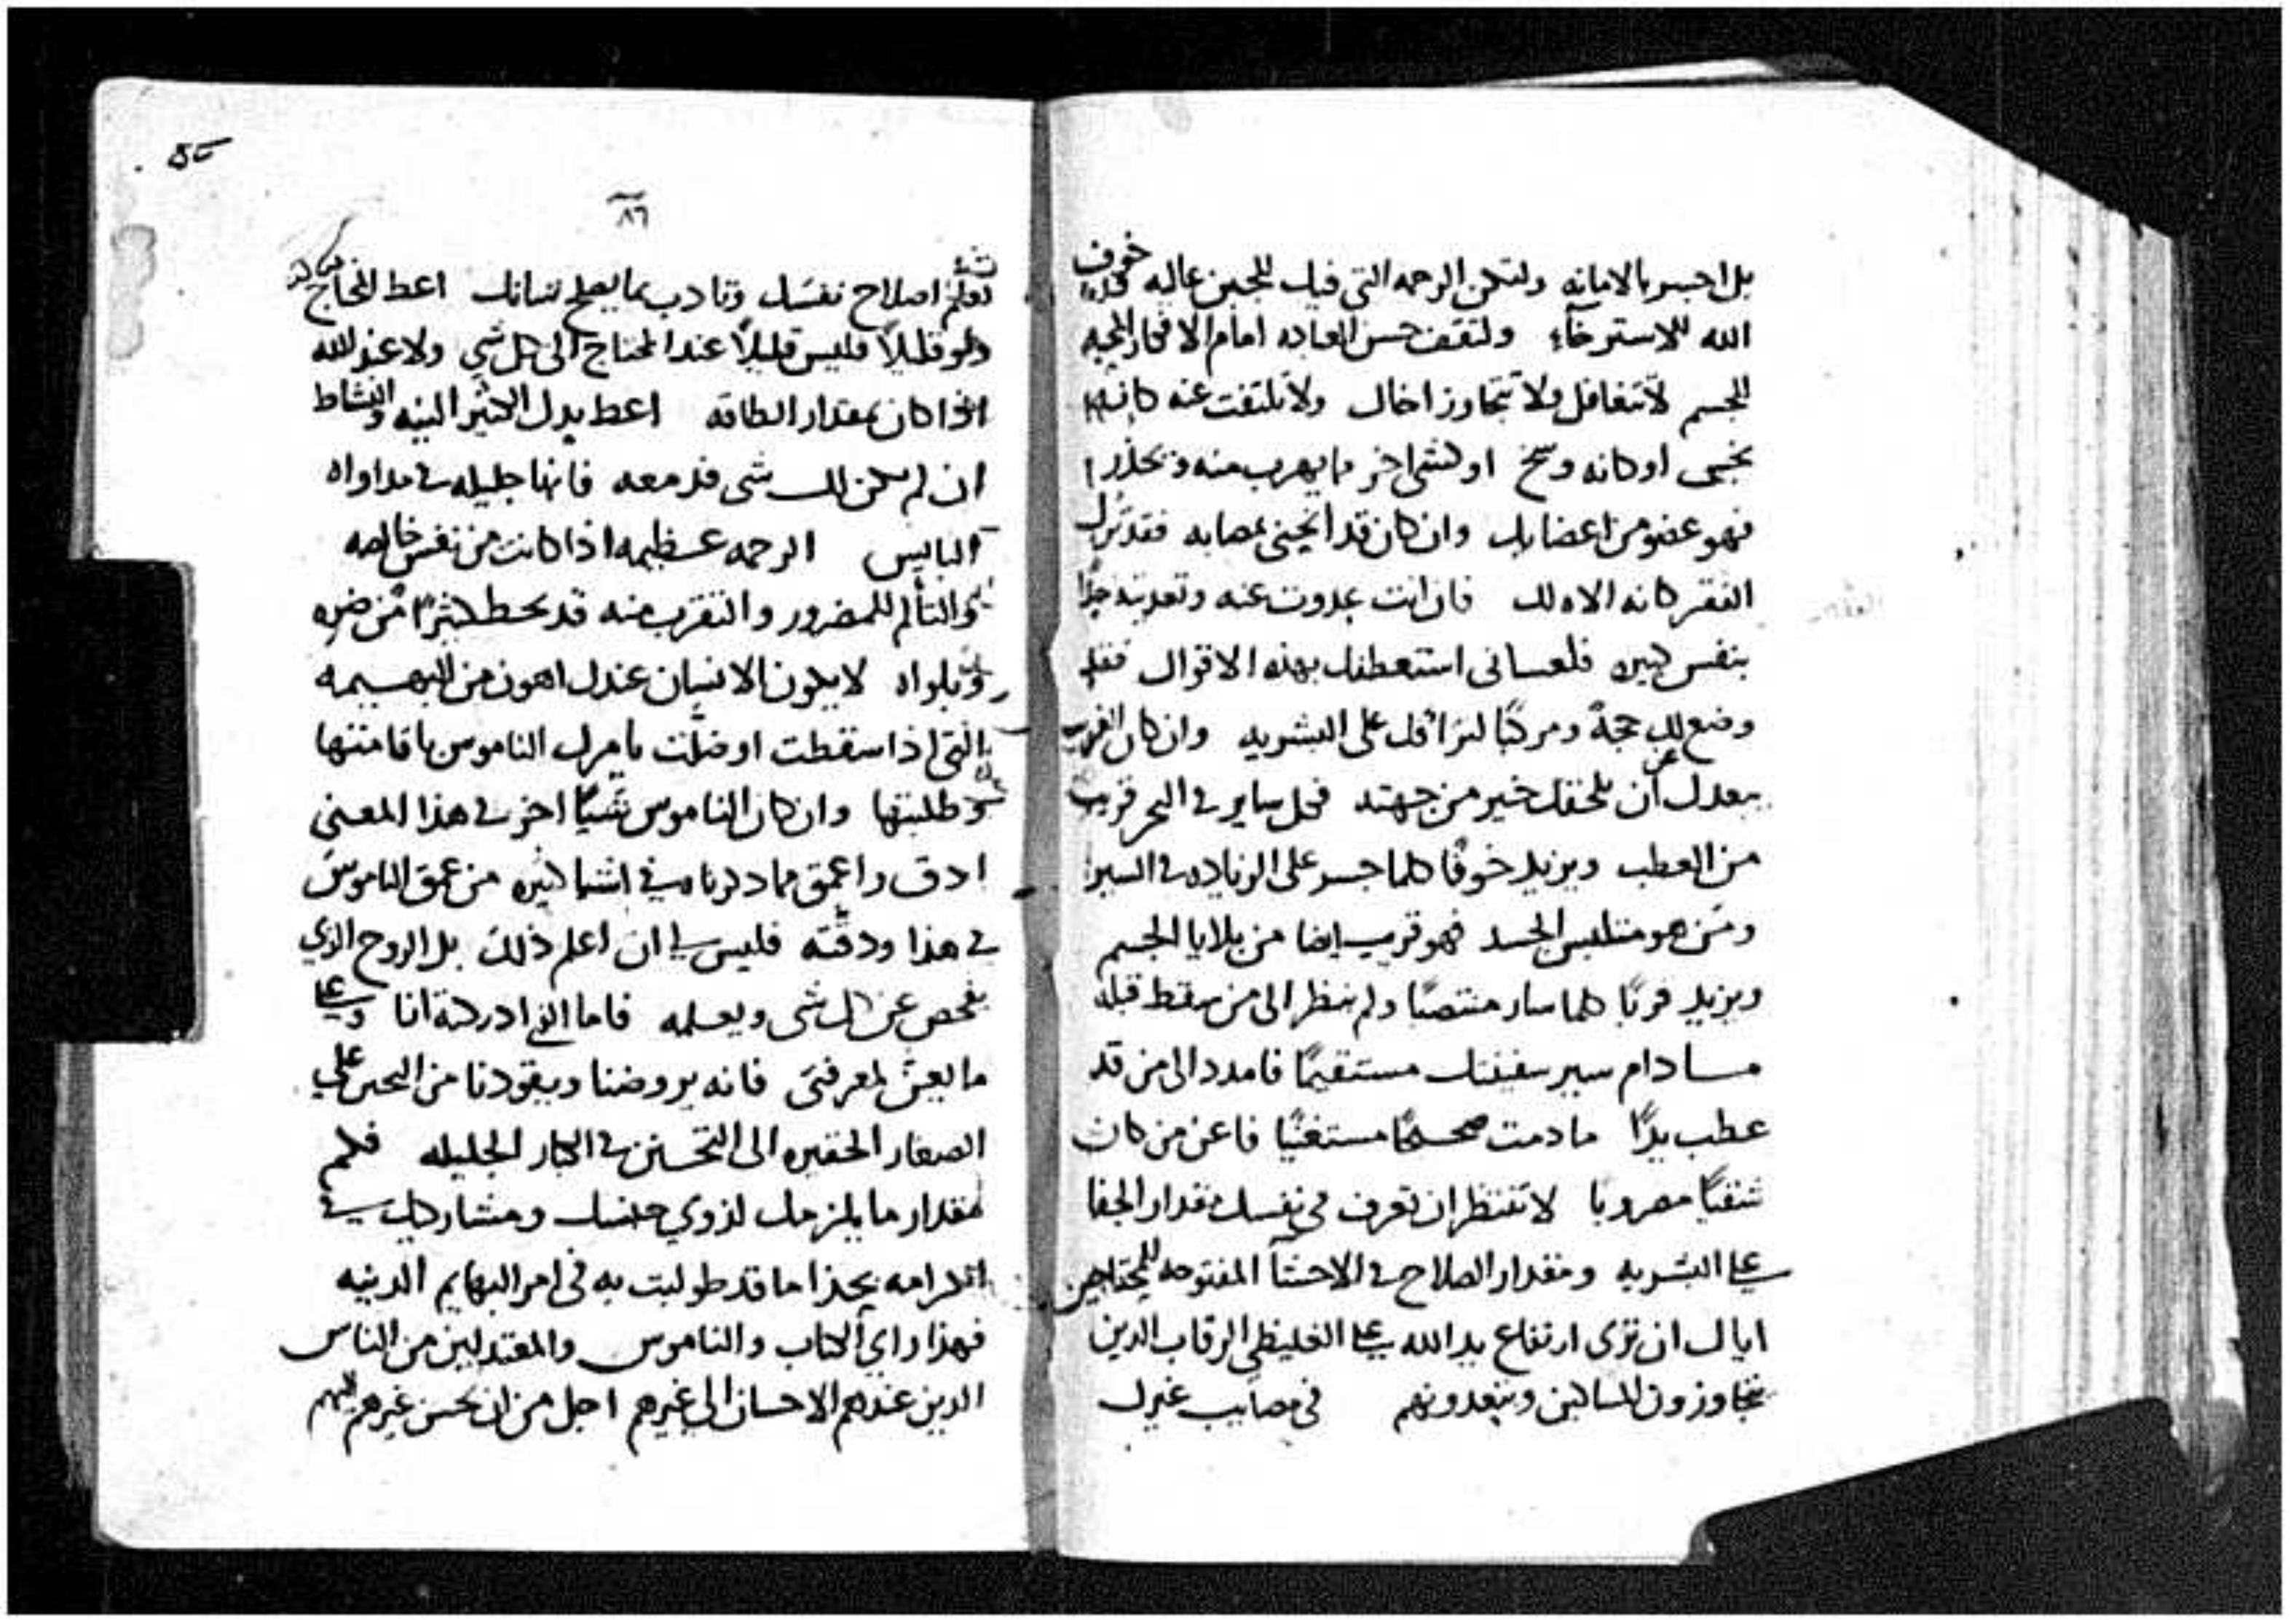 بل اجسر بالامانه ولتكن الرحمه التى فيك للجبن غالبه خوف
الله للاسترخآء ولتقف حسن العباده امام الافكار المحبه
للجسم لا تتغافل ولا تتجاوز اخاك ولا تلتفت عنه كانه
نجس او كانه وسخ او كشى اخر مما يهرب منه ويحذر
فهو عضو من اعضايك وان كان قد انحنى بمصابه فقد ترك
الفقر كانه الاه لك فان انت عدوت عنه وتعديته جدًا
بنفس كبيره فلعسانى استعطفك بهذه الاقوال فقد
وضع لك حجة ومركبًا لتراقك على البشريه وان كان الغريب
يعدك عن ان يلحقك خير من جهته فكل ساير فى البحر قريب
من العطب ويزيد خوفًا كلما جسر على الزياده فى السير
ومن هو متلبس الجسد فهو قريب ايضا من بلايا الجسم
ويزيد قربًا كلما سار منتصبًا ولم ينظر الى من سقط قبله
مسا دام سير سفينتك مستقيمًا فامدد الى من قد
عطب يدًا ما دمت صحيحًا مستغنيًا فاعن من كان
شقيًا مضرورا لا تنتظر ان تعرف فى نفسك مقدار الجفا
على البشريه ومقدار الصلاح فى الاحشآ المفتوحه للمحتاجين
اياك ان ترى ارتفاع يد الله على الغليظى الرقاب الدين
يتجاوزون المساكين ويتعدونهم فى مصايب غيرك
٨٦
تعلم اصلاح نفسك وتادب بما يصلح شانك اعط المحتاج
ولو قليلًا فليس قليلًا عند المحتاج الى كل شي ولا عند الله
اذا كان بمقدار الطاقه اعط بدل الكثير النيه والنشاط
ان لم يكن لك شى فدمعه فانها جليله فى مداواه
البايس الرحمه عظيمه اذا كانت من نفس خالصه
والتألم للمضرور والتقرب منه قد يحط كثيرًا من ضره
وبلواه لا يكون الانسان عندك اهون من البهيمه
التى اذا سقطت او ضلّت يامرك الناموس باقامتها
وطلبتها وان كان الناموس شيًا اخر فى هذا المعنى
ادق واعمق مما دكرناه فى اشيا كثيره من عمق الناموس
فى هذا ودقّته فليس لى ان اعلم ذلك بل الروح الذي
يفحص عن كل شى ويعلمه فاما الذى ادركته انا وعلى
ما يعن لمعرفتى فانه يروضنا ويقودنا من التحنن على
الصغار الحقيره الى التحسنن فى الكبار الجليله فلكم
مقدار ما يلزمك لذوي جنسك ومشاركيك فى
الكرامه بحذا ما قد طولبت به فى امر البهايم الدنيه
فهذا راي الكتاب والناموس والمعتدلين من الناس
الدين عندهم الاحسان الى غيرهم اجل من ان يحسن غيرهم اليهم